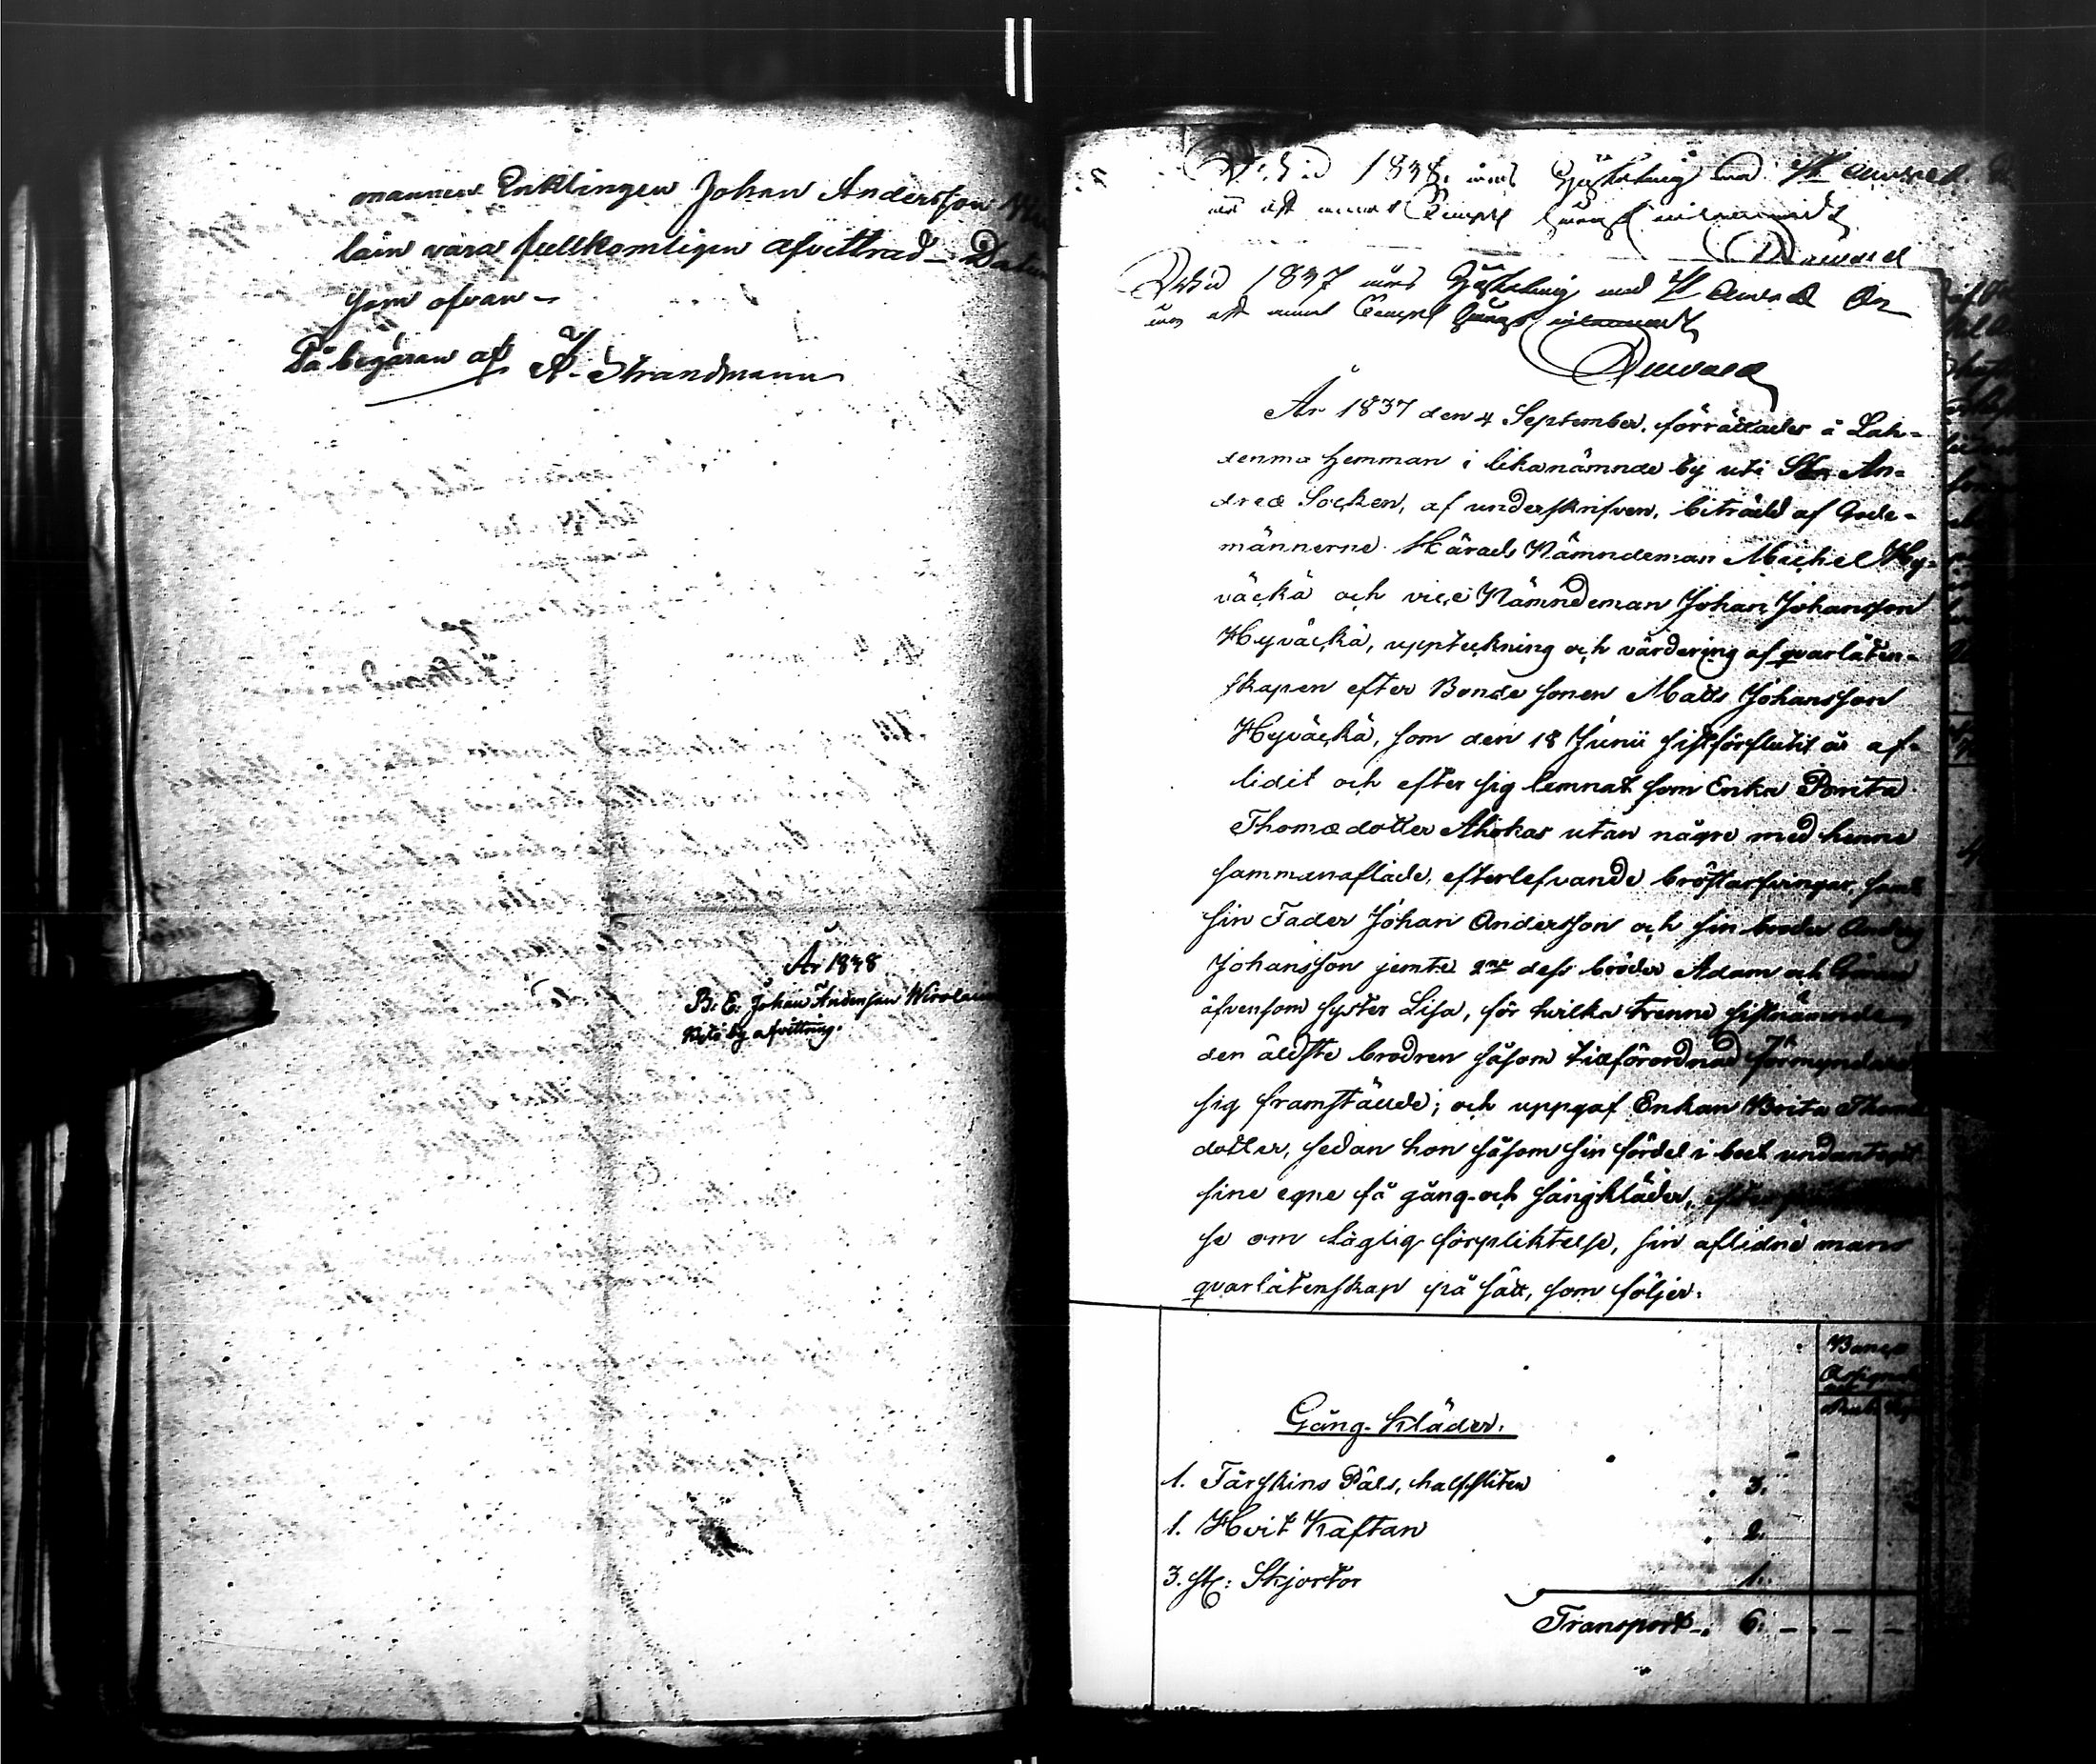 mannen Enklingen Johan Andersson
lain vara fullkomligen afvittrad – Datum
som ofvan –
På begäran af A. Strandmann
År 1838
B. E. Johan Andersson Wirolainen
by afvittring.
1838
1837
År 1837 den 4 September, förrättades å Lah-
denma hemman i lika nämnde by uti S:t An-
dreæ Socken, af underskrifven, biträdd af Gode-
männerne Härads Nämndeman Michel Hy-
väckä och vice Nämndeman Johan Johansson
Hyväckä, uppteckning och värdering af qvarlåten-
skapen efter Bonde sonen Matts Johansson
Hyväckä, som den 18 Junii sistförflutit år af-
lidit och efter sig lemnat som Enka Brita
Thomædotter Ahokas utan några med henne
sammanaflade, efterlefvande bröstarfvingar, samt
sin Fader Johan Andersson och sin broder Anders
Johansson jemte 2ne dess bröder Adam och Göran
äfvensom syster Lisa, för hvilka trenne sistnämnde
den äldste brodren såsom tillförordnad förmyndare
sig framställde; och uppgaf Enkan Brita Thomæ
dotter, sedan hon såsom sin fördel i boet undantagit
sine egne få gång- och sängkläder,
se om laglig förpliktelse, sin aflidne mans
qvarlåtenskap på sätt, som följer.
Banco
Gång-Kläder.
1. Fårskins Päls, halfsliten 3.
1. Hvit Kaftan 2.
3. st: Skjortor 1.
Transport 6. – – –